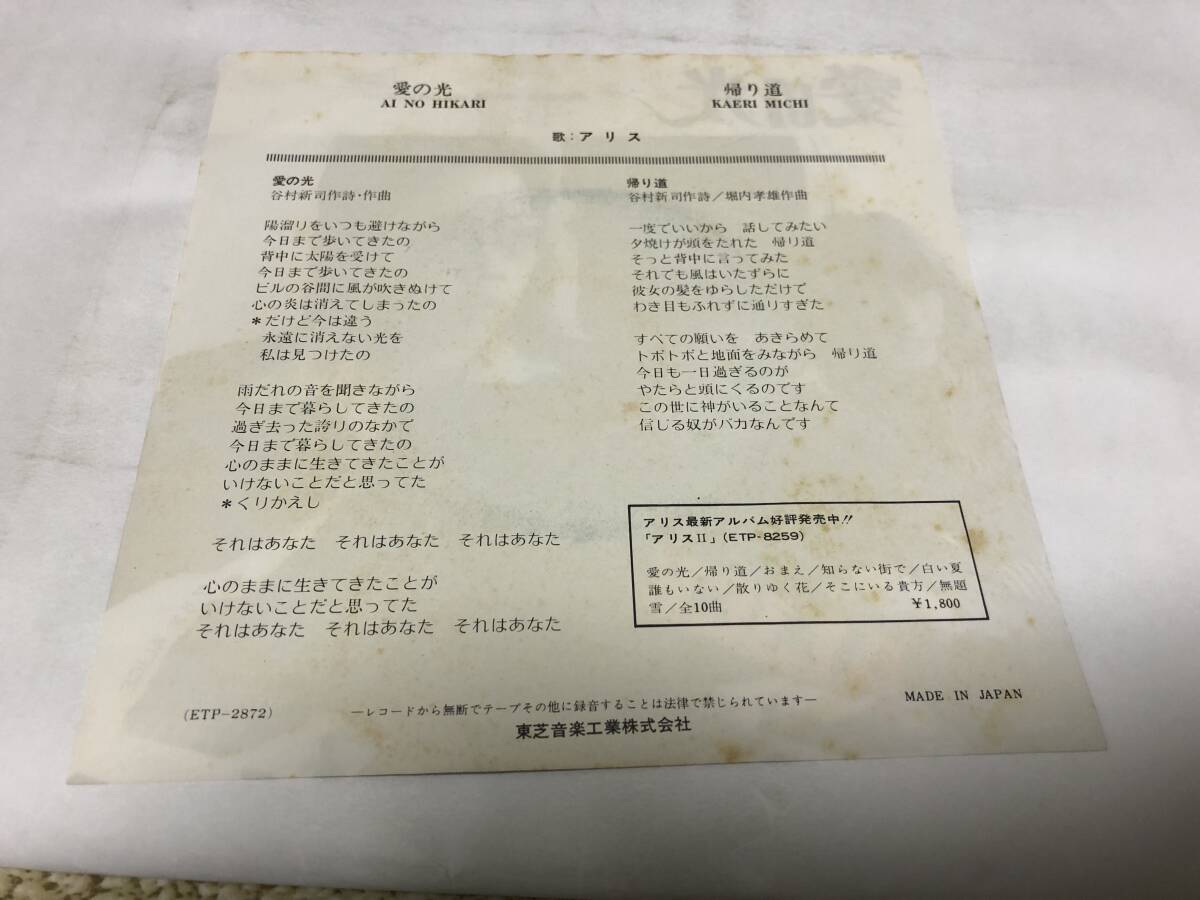 愛の光
AI NO HIKARI
帰り道
KAERI MICHI
歌:アリス
愛の光
谷村新司作詩・作曲
陽溜りをいつも避けながら
今日まで歩いてきたの
背中に太陽を受けて
今日まで歩いてきたの
ビルの谷間に風が吹きぬけて
心の炎は消えてしまったの
*だけど今は違う
永遠に消えない光を
私は見つけたの
雨だれの音を聞きながら
今日まで暮らしてきたの
過ぎ去った誇りのなかで
今日まで暮らしてきたの
心のままに生きてきたことが
いけないことだと思ってた
*くりかえし
それはあなた それはあなた それはあなた
心のままに生きてきたことが
いけないことだと思ってた
それはあなた それはあなた それはあなた
帰り道
谷村新司作詩/堀内孝雄作曲
一度でいいから 話してみたい
夕焼けが頭をたれた 帰り道
そっと背中に言ってみた
それでも風はいたずらに
彼女の髪をゆらしただけで
わき目もふれずに通りすぎた
すべての願いを あきらめて
トボトボと地面をみながら 帰り道
今日も一日過ぎるのが
やたらと頭にくるのです
この世に神がいることなんて
信じる奴がバカなんです
アリス最新アルバム好評発売中!!
「アリスII」(ETP-8259)
愛の光/帰り道/おまえ/知らない街で/白い夏
誰もいない/散りゆく花/そこにいる貴方/無題
雪/全10曲 ¥1,800
(ETP-2872)
—レコードから無断でテープその他に録音することは法律で禁じられています—
東芝音楽工業株式会社
MADE IN JAPAN